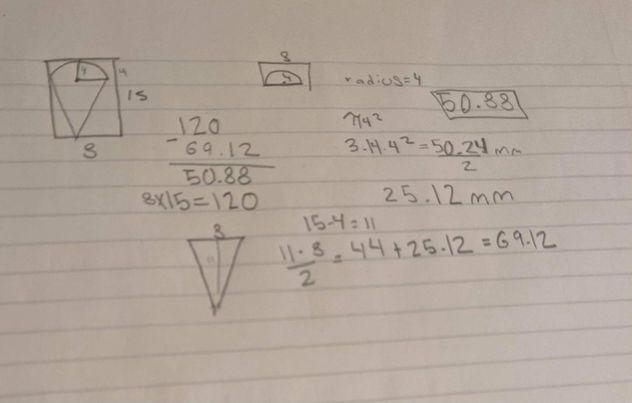 8
4
4
15
8
4
radius=4
50.88
120
- 69.12
50.88
8x15=120
π4²
3.14.4²=50.24 mm
2
25.12 mm
8
15-4=11
11.8 = 44+25.12=69.12
2